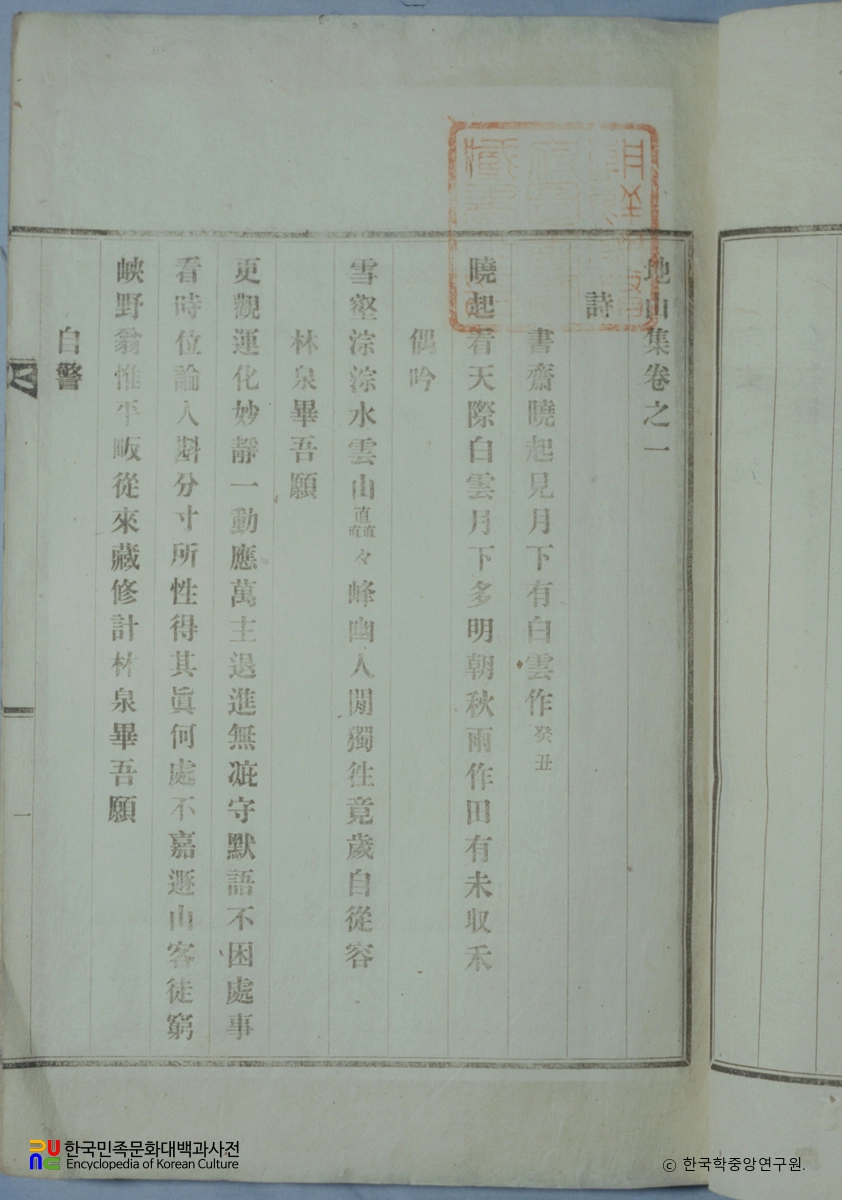 地山集卷之一
詩
書齋曉起見月下有白雲作 癸丑
曉起看天際白雲月下多明朝秋雨作田有未収禾
偶吟
雪壑淙淙水雲山矗々峰幽人閒獨徃竟歲自從容
林泉畢吾願
更觀運化妙靜一動應萬主退進無疵守默語不困處事
看時位論人斟分寸所性得其眞何處不嘉遯山客徒窮
峽野翁惟平畈從來藏修計林泉畢吾願
自警
一
한국민족문화대백과사전
Encyclopedia of Korean Culture
© 한국학중앙연구원.